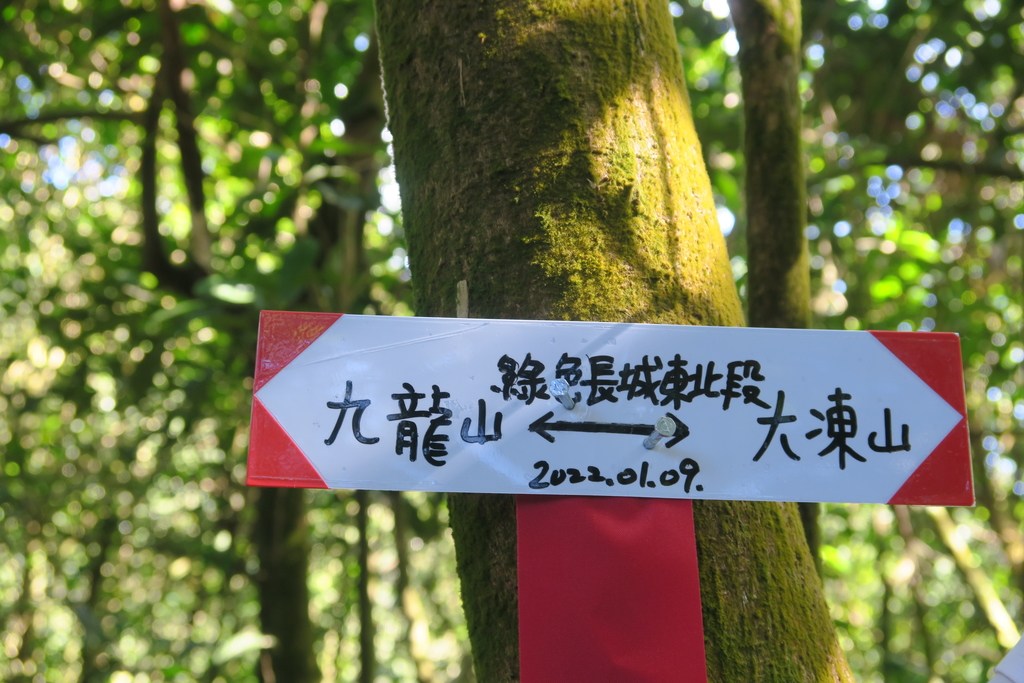 綠色長城東北段
九龍山 ⟷ 大凍山
2022.01.09.